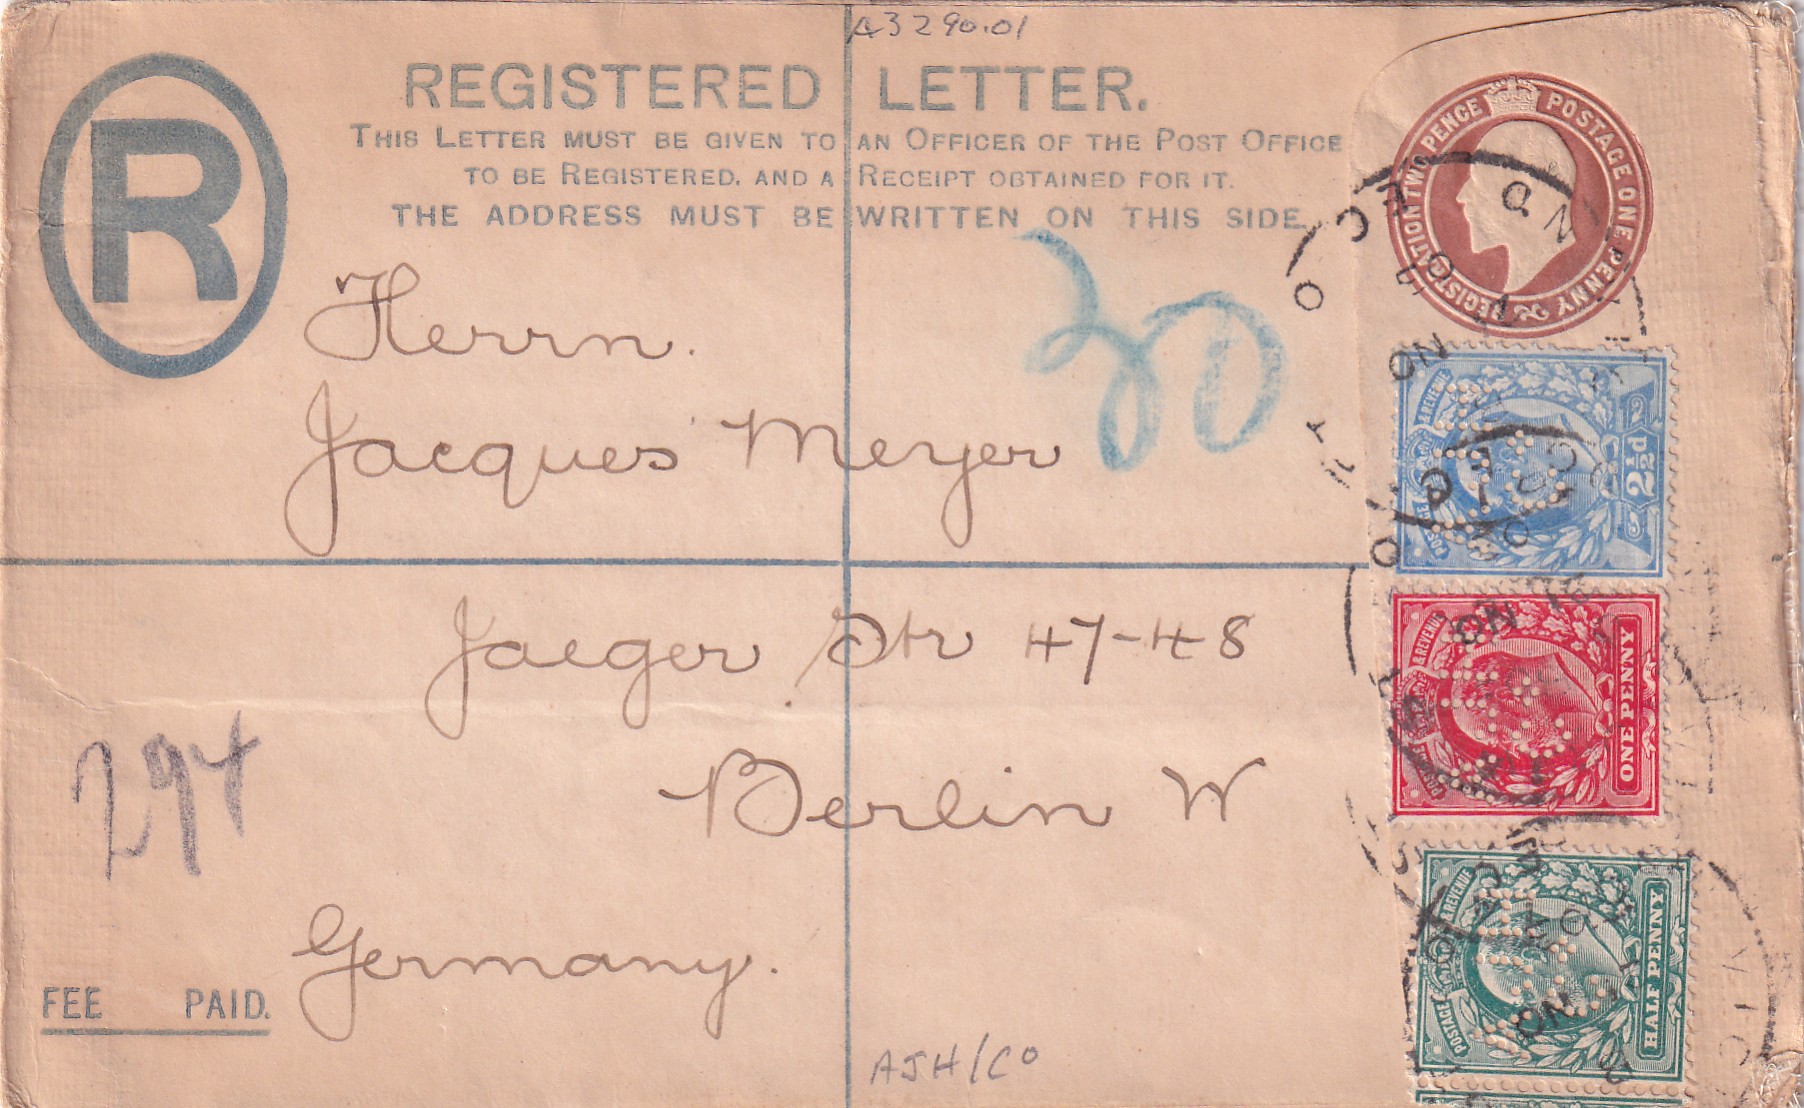 A3290.01
R
REGISTERED LETTER.
THIS LETTER MUST BE GIVEN TO AN OFFICER OF THE POST OFFICE
TO BE REGISTERED, AND A RECEIPT OBTAINED FOR IT.
THE ADDRESS MUST BE WRITTEN ON THIS SIDE.
REGISTRATION TWO PENCE POSTAGE ONE PENNY
Herrn.
Jacques Meyer
Jaeger Str 47-48
Berlin W
Germany.
294
FEE PAID.
AJH/CO
POSTAGE & REVENUE
2½d
POSTAGE & REVENUE
ONE PENNY
POSTAGE & REVENUE
HALF PENNY